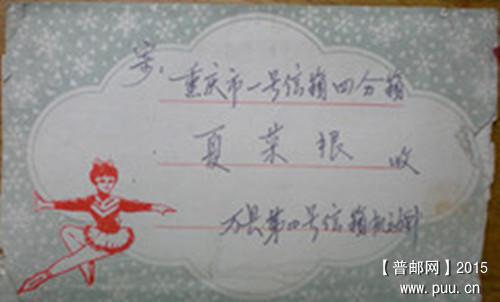 寄:重庆市一号信箱四分箱
夏荣根 收
万县第四号信箱
【普邮网】2015
www.puu.cn